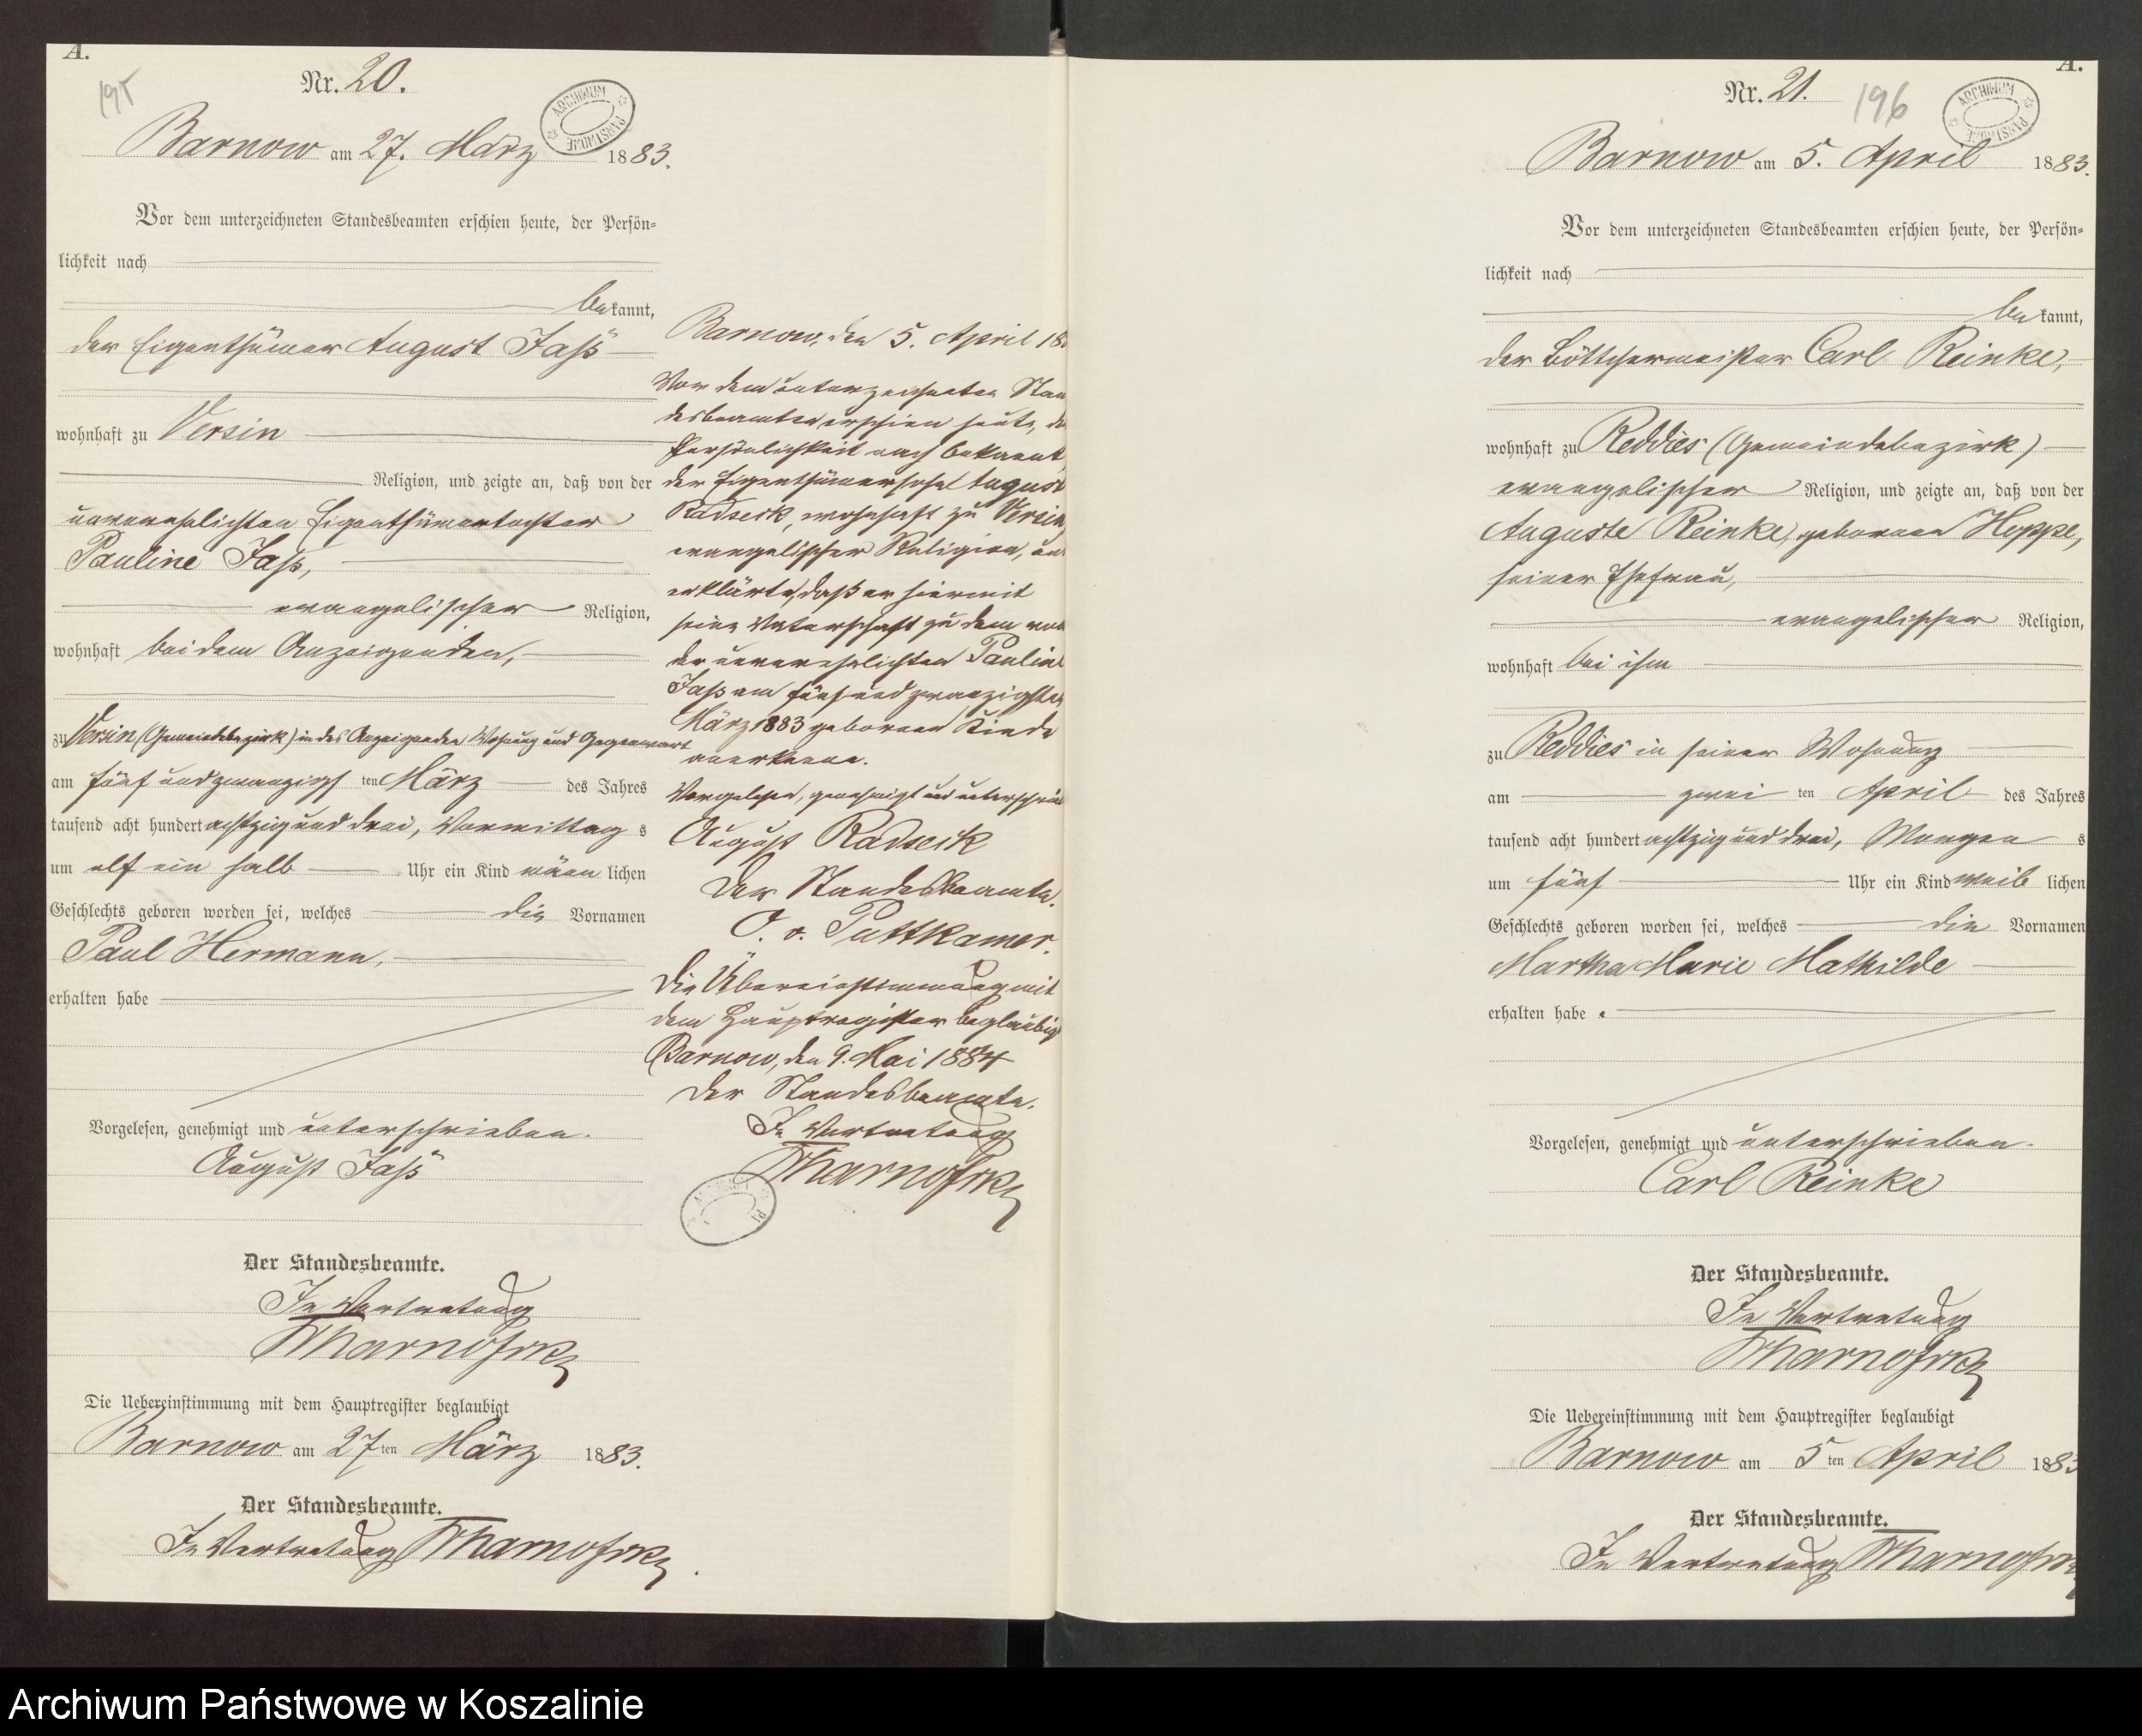 A.
195
Nr. 20.
ARCHIWUM PAŃSTWOWE
Barnow am 27. März 1883.
Vor dem unterzeichneten Standesbeamten erschien heute, der Persön=
lichkeit nach
bekannt,
der Eigenthümer August Jaß
wohnhaft zu Versin
Religion, und zeigte an, daß von der
unverehelichten Eigenthümertochter
Pauline Jaß,
evangelischer Religion,
wohnhaft bei dem Anzeigenden,
zu Versin (Gemeindebezirk) in des Anzeigenden Wohnung und Gegenwart
am fünf und zwanzigsten März des Jahres
tausend acht hundert achtzig und drei, Vormittags
um elf ein halb Uhr ein Kind männlichen
Geschlechts geboren worden sei, welches die Vornamen
Paul Hermann,
erhalten habe
Vorgelesen, genehmigt und unterschrieben.
August Jaß
Der Standesbeamte.
In Vertretung
Die Uebereinstimmung mit dem Hauptregister beglaubigt
Barnow am 27ten März 1883.
Der Standesbeamte.
In Vertretung
Barnow, den 5. April 18
Vor dem unterzeichneten Stan
desbeamten erschien heute, de
Persönlichkeit nach bekannt,
der Eigenthümersohn August
Radseck, wohnhaft zu Versin,
evangelischer Religion, un
erklärte, daß er hiermit
seine Vaterschaft zu dem von
der unverehelichten Pauline
Jaß am fünf und zwanzigsten
März 1883 geborenen Kinde
anerkenne.
Vorgelesen, genehmigt und unterschrie
August Radseck
Der Standesbeamte.
O. v. Puttkamer.
Die Übereinstimmung mit
dem Hauptregister beglaubigt
Barnow, den 9. Mai 1884
Der Standesbeamte.
In Vertretung
A.
Nr. 21.
196
ARCHIWUM PAŃSTWOWE
Barnow am 5. April 1883.
Vor dem unterzeichneten Standesbeamten erschien heute, der Persön=
lichkeit nach
bekannt,
der Böttchermeister Carl Reinke,
wohnhaft zu Reddies (Gemeindebezirk)
evangelischer Religion, und zeigte an, daß von der
Auguste Reinke, geborenen Hoppe,
seiner Ehefrau,
evangelischer Religion,
wohnhaft bei ihm
zu Reddies in seiner Wohnung
am zweiten April des Jahres
tausend acht hundert achtzig und drei, Morgens
um fünf Uhr ein Kind weiblichen
Geschlechts geboren worden sei, welches die Vornamen
Martha Marie Mathilde
erhalten habe.
Vorgelesen, genehmigt und unterschrieben.
Carl Reinke
Der Standesbeamte.
In Vertretung
Die Uebereinstimmung mit dem Hauptregister beglaubigt
Barnow am 5ten April 1883
Der Standesbeamte.
In Vertretung
Archiwum Państwowe w Koszalinie